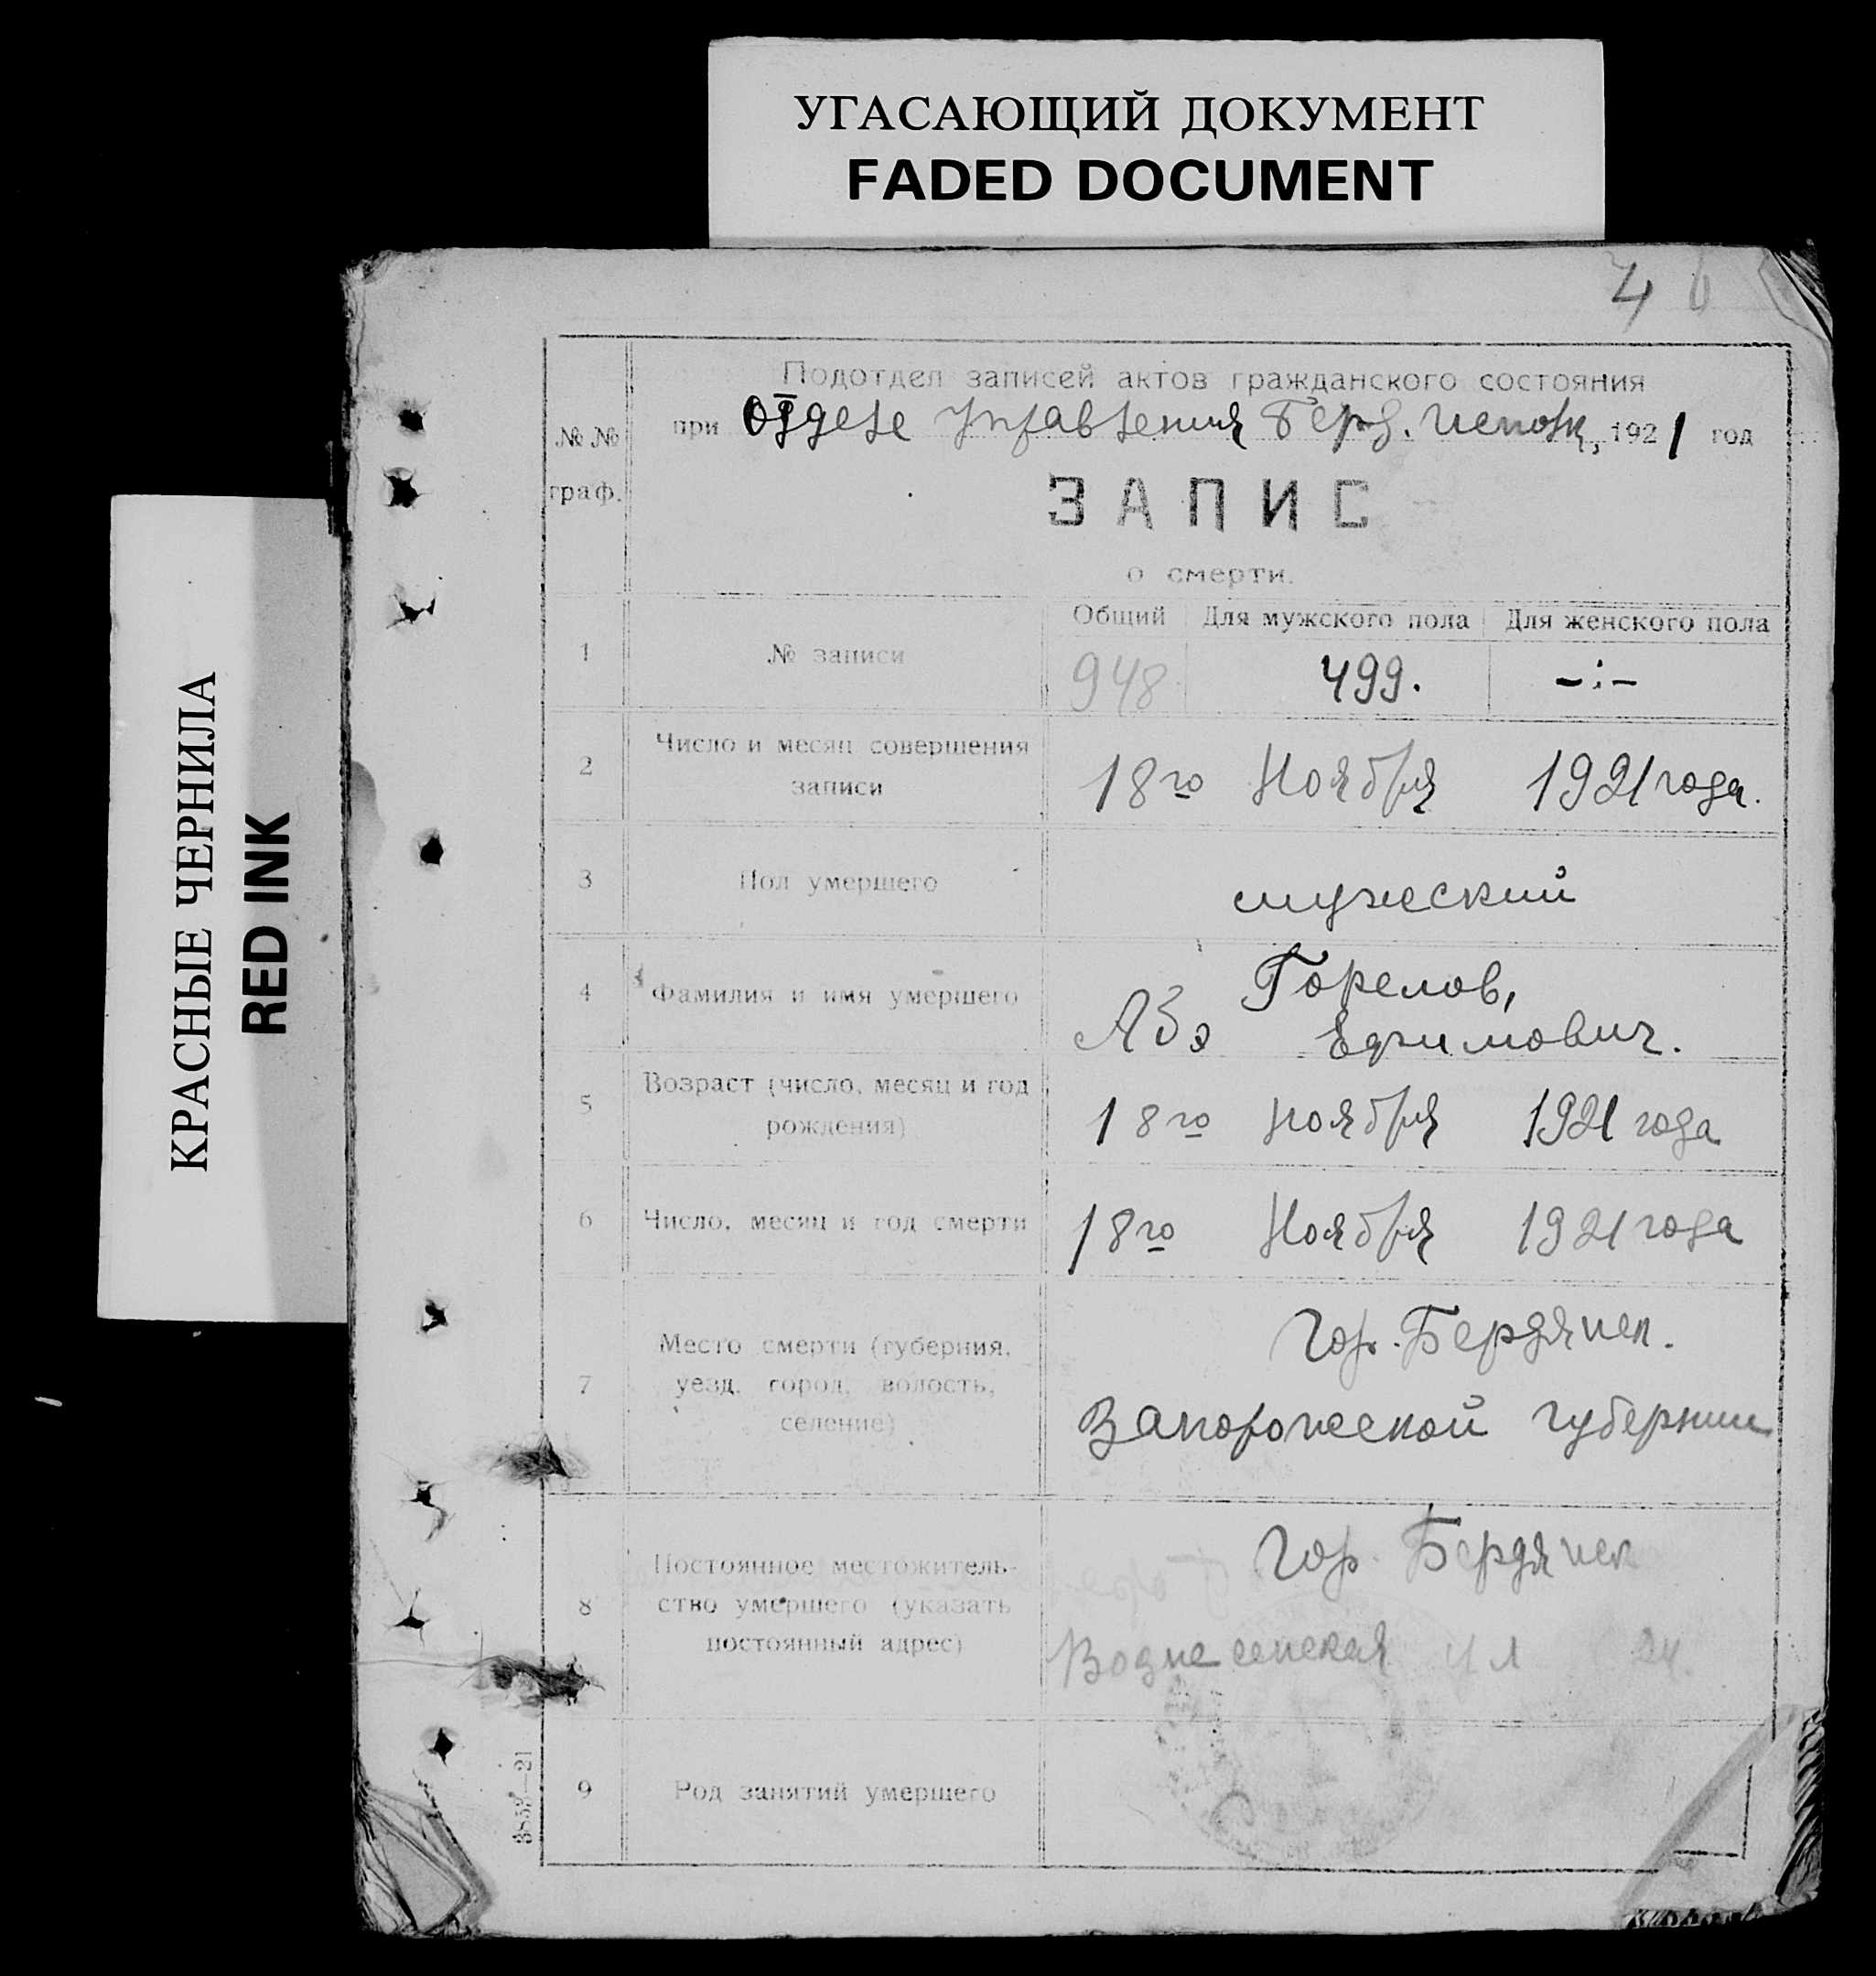 УГАСАЮЩИЙ ДОКУМЕНТ
FADED DOCUMENT
КРАСНЫЕ ЧЕРНИЛА
RED INK
4
Подотдел записей актов гражданского состояния
№ № граф.
при Отделе Управления Берд. Исполк, 1921 год
ЗАПИС
о смерти.
Общий Для мужского пола Для женского пола
1 № записи 948 499. -:-
2 Число и месяц совершения
записи
18го Ноября 1921 года.
3 Пол умершего мужеский
4 Фамилия и имя умершего
Горелов,
Ефимович.
5 Возраст (число, месяц и год
рождения)
18го ноября 1921 года
6 Число, месяц и год смерти 18го Ноября 1921 года
7 Место смерти (губерния,
уезд, город, волость,
селение)
Гор. Бердянск.
Запорожской губернии
8 Постоянное местожитель-
ство умершего (указать
постоянный адрес)
Гор. Бердянск
Вознесенская ул 24.
9 Род занятий умершего
3853—21